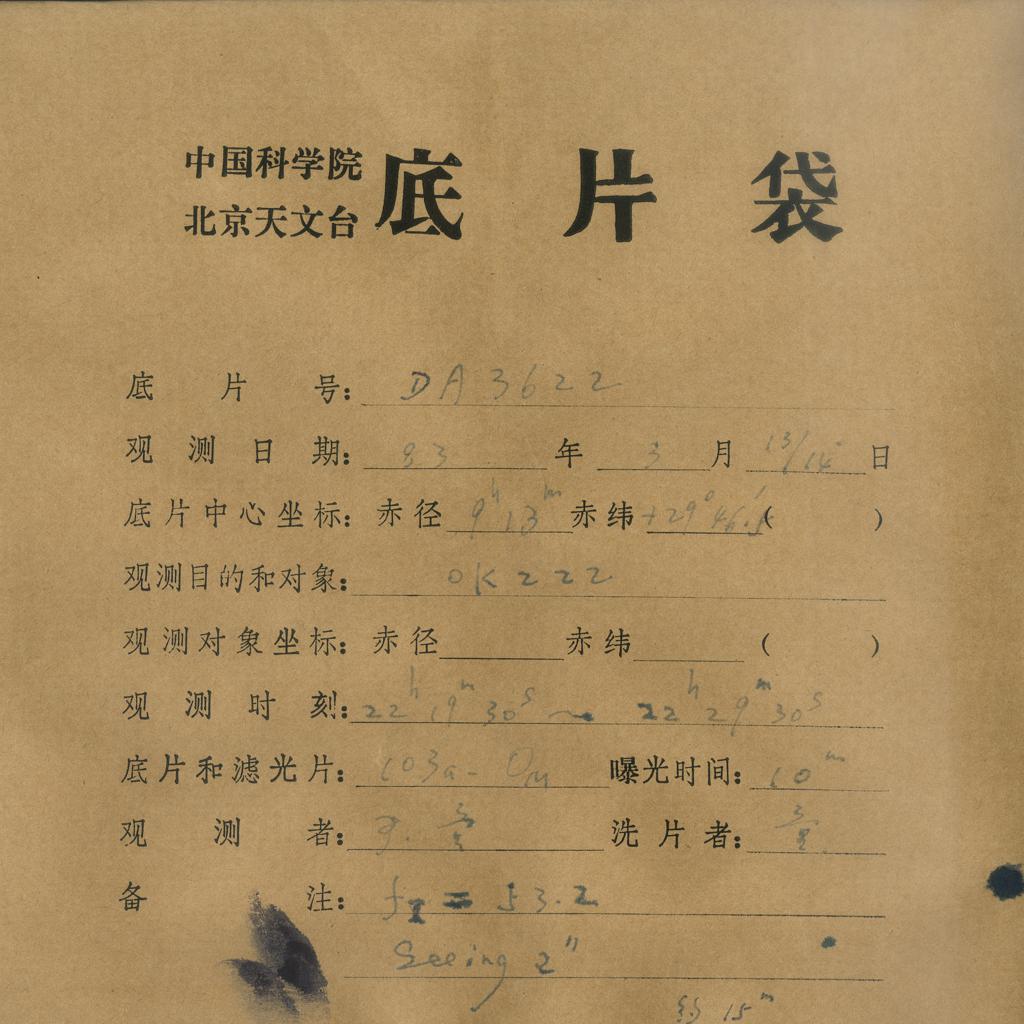 中国科学院
北京天文台
底片袋
底片号: DA3622
观测日期: 83 年 3 月 13/14 日
底片中心坐标: 赤径 9h 13m 赤纬 +29° 46.′5 ( )
观测目的和对象: OK222
观测对象坐标: 赤径 赤纬 ( )
观测时刻: 22h 19m 30s ~ 22h 29m 30s
底片和滤光片: 103a-O 曝光时间: 10m
观测者: 洗片者:
备注: fI = 53.2
Seeing 2"
约 15m